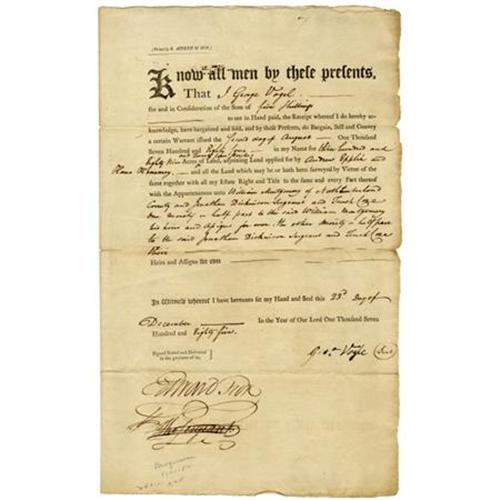 Know all men by these presents,
That I George Vogel
for and in Consideration of the Sum of five Shillings
to me in Hand paid, the Receipt whereof I do hereby ac-
knowledge, have bargained and sold, and by these Presents, do Bargain, Sell and Convey
a certain Warrant issued the Second day of August One Thousand
Seven Hundred and Eighty four in my Name for three hundred and
Eighty Nine Acres of Land, adjoining Land applied for by Andrew
and all the Land which may be or hath been surveyed by Virtue of the
same together with all my Estate Right and Title to the same and every Part thereof
with the Appurtenances unto William Montgomery of Northumberland
County and Jonathan Dickinson Sergeant and Tench Coxe
One moiety or half part to the said William Montgomery
his heirs and Assigns for ever. the other moiety or half part
to the said Jonathan Dickinson Sergeant and Tench Coxe
their
Heirs and Assigns for ever
In Witness whereof I have hereunto set my Hand and Seal this 23d Day of
December in the Year of our Lord One Thousand Seven
Hundred and Eighty four.
Signed Sealed and Delivered
in the presence of us.
Geo. Vogle Seal
Edward Fox